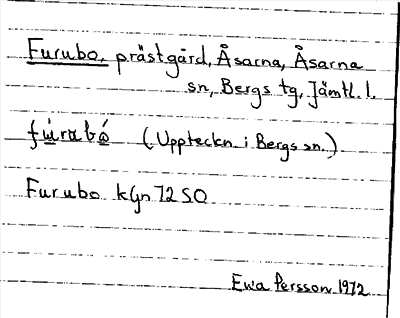 Furubo, prästgård, Åsarna, Åsarna
sn, Bergs tg, Jämtl. l.
(Uppteckn. i Bergs sn.)
Furubo kGn 72 SO
Ewa Persson 1972